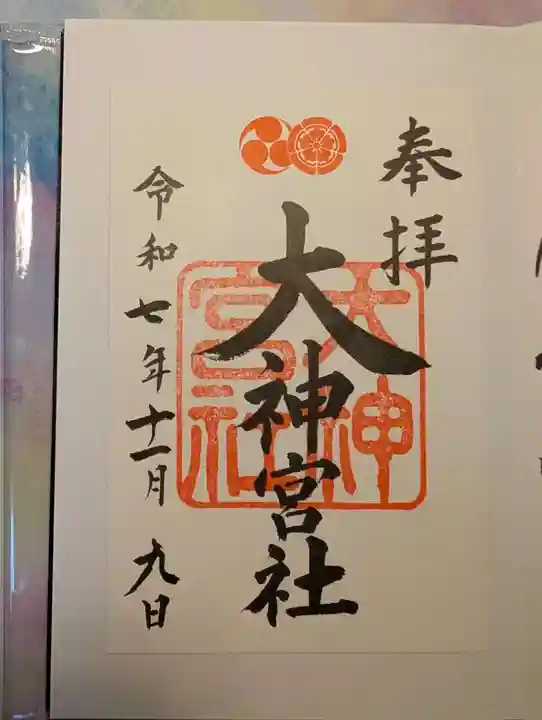 奉拝
大神宮社
大神宮社
令和七年十一月九日